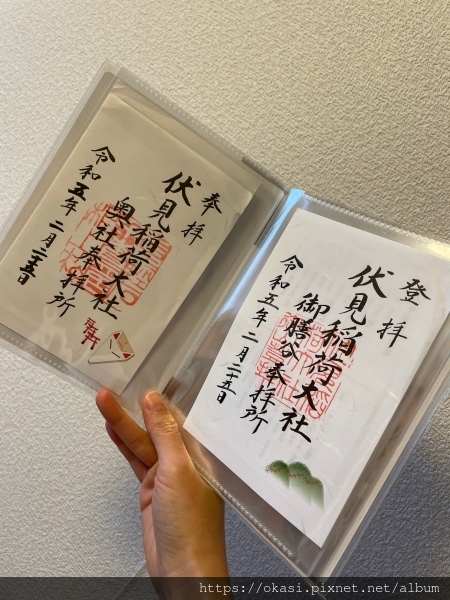 奉拝
伏見稲荷大社
奥社奉拝所
令和五年二月二十五日
登拝
伏見稲荷大社
御膳谷奉拝所
令和五年二月二十五日
https://okasi.pixnet.net/album